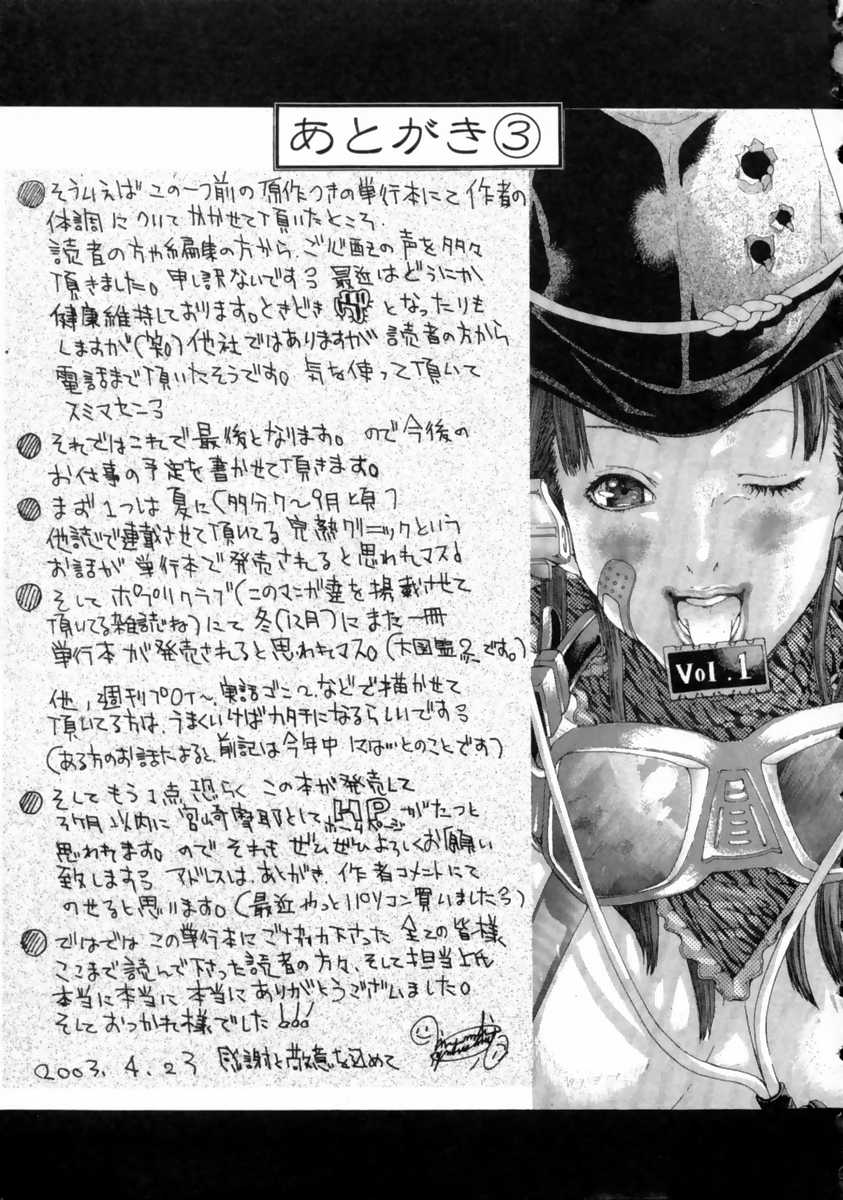 あとがき③
そういえば この一つ前の 原作つきの単行本にて 作者の
体調 について かかせて頂いたところ、
読者の方や編集の方から、ご心配の声を多々
頂きました。申し訳ないです 最近はどうにか
健康維持しております。ときどき となったりも
しますが(笑) 他社ではありますが 読者の方から
電話まで頂いたそうです。気を使って頂いて
スミマセン
それではこれで最後となります。ので今後の
お仕事の予定を書かせて頂きます。
まず1つは夏に(多分7〜9月頃)
他誌で連載させて頂いてる 完熟クリニックという
お話が 単行本で発売されると思われマス
そして ポプリクラブ(このマンガ達を掲載させて
頂いてる雑誌ね)にて 冬(12月)にまた一冊
単行本が発売されると思われマス。(です。)
他、週刊プロイ〜、実話 などで描かせて
頂いてる方は、うまくいけばカタチになるらしいです
(ある方のお話によると、前記は今年中 にはいとのことです)
そしてもう1点、恐らく この本が発売して
3ヶ月以内に 宮崎摩耶として HP ホームページ がたつと
思われます。ので それも ぜひぜひよろしくお願い
致します アドレスは、あとがき、作者コメントにて
のせると思います。(最近やっとパソコン買いました)
ではでは この単行本にご協力下さった 全ての皆様、
ここまで読んで下さった読者の方々、そして担当氏
本当に本当に 本当にありがとうございました。
そしておつかれ様でした!!!
2003.4.23 感謝と敬意を込めて
Vol.1